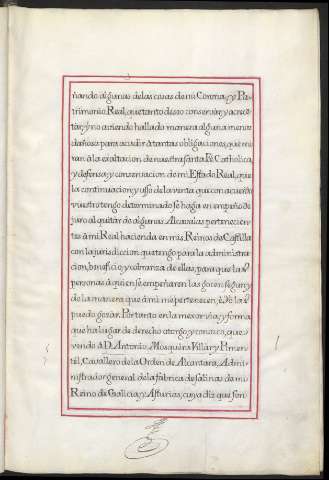 ñando algunas de las cosas de mi Corona, y Pa-
trimonio Real, que tanto deseo conservar, y acrecen-
tar, y no aviendo hallado manera alguna menos
dañosa para acudir à tantas obligaciones, que mi-
ran à la exaltacion de nuestra santa Fè Catholica,
y defensa, y conservacion de mi Estado Real, que
la continuacion, y usso de la venta, que con acuerdo
vuestro tengo determinado se haga en empeño de
juro al quitar de algunas Alcavalas pertenecien-
tes à mi Real hacienda en mis Reinos de Castilla
con la jurisdiccion que tengo para la administra-
cion, beneficio, y cobranza de ellas, para que las
personas à quien se empeñaren las gocen segun, y
de la manera que à mi me pertenecen, è Yo las
puedo gozar. Por tanto en la mexor via, y forma
que ha lugar de derecho otorgo, y conozco, que
vendo à D. Antonio Mosquera Villar, y Pimen-
tel, Cavallero de la Orden de Alcantara, Admi-
nistrador general de la fábrica de salinas de mi
Reino de Galicia, y Asturias, cuya diz que son